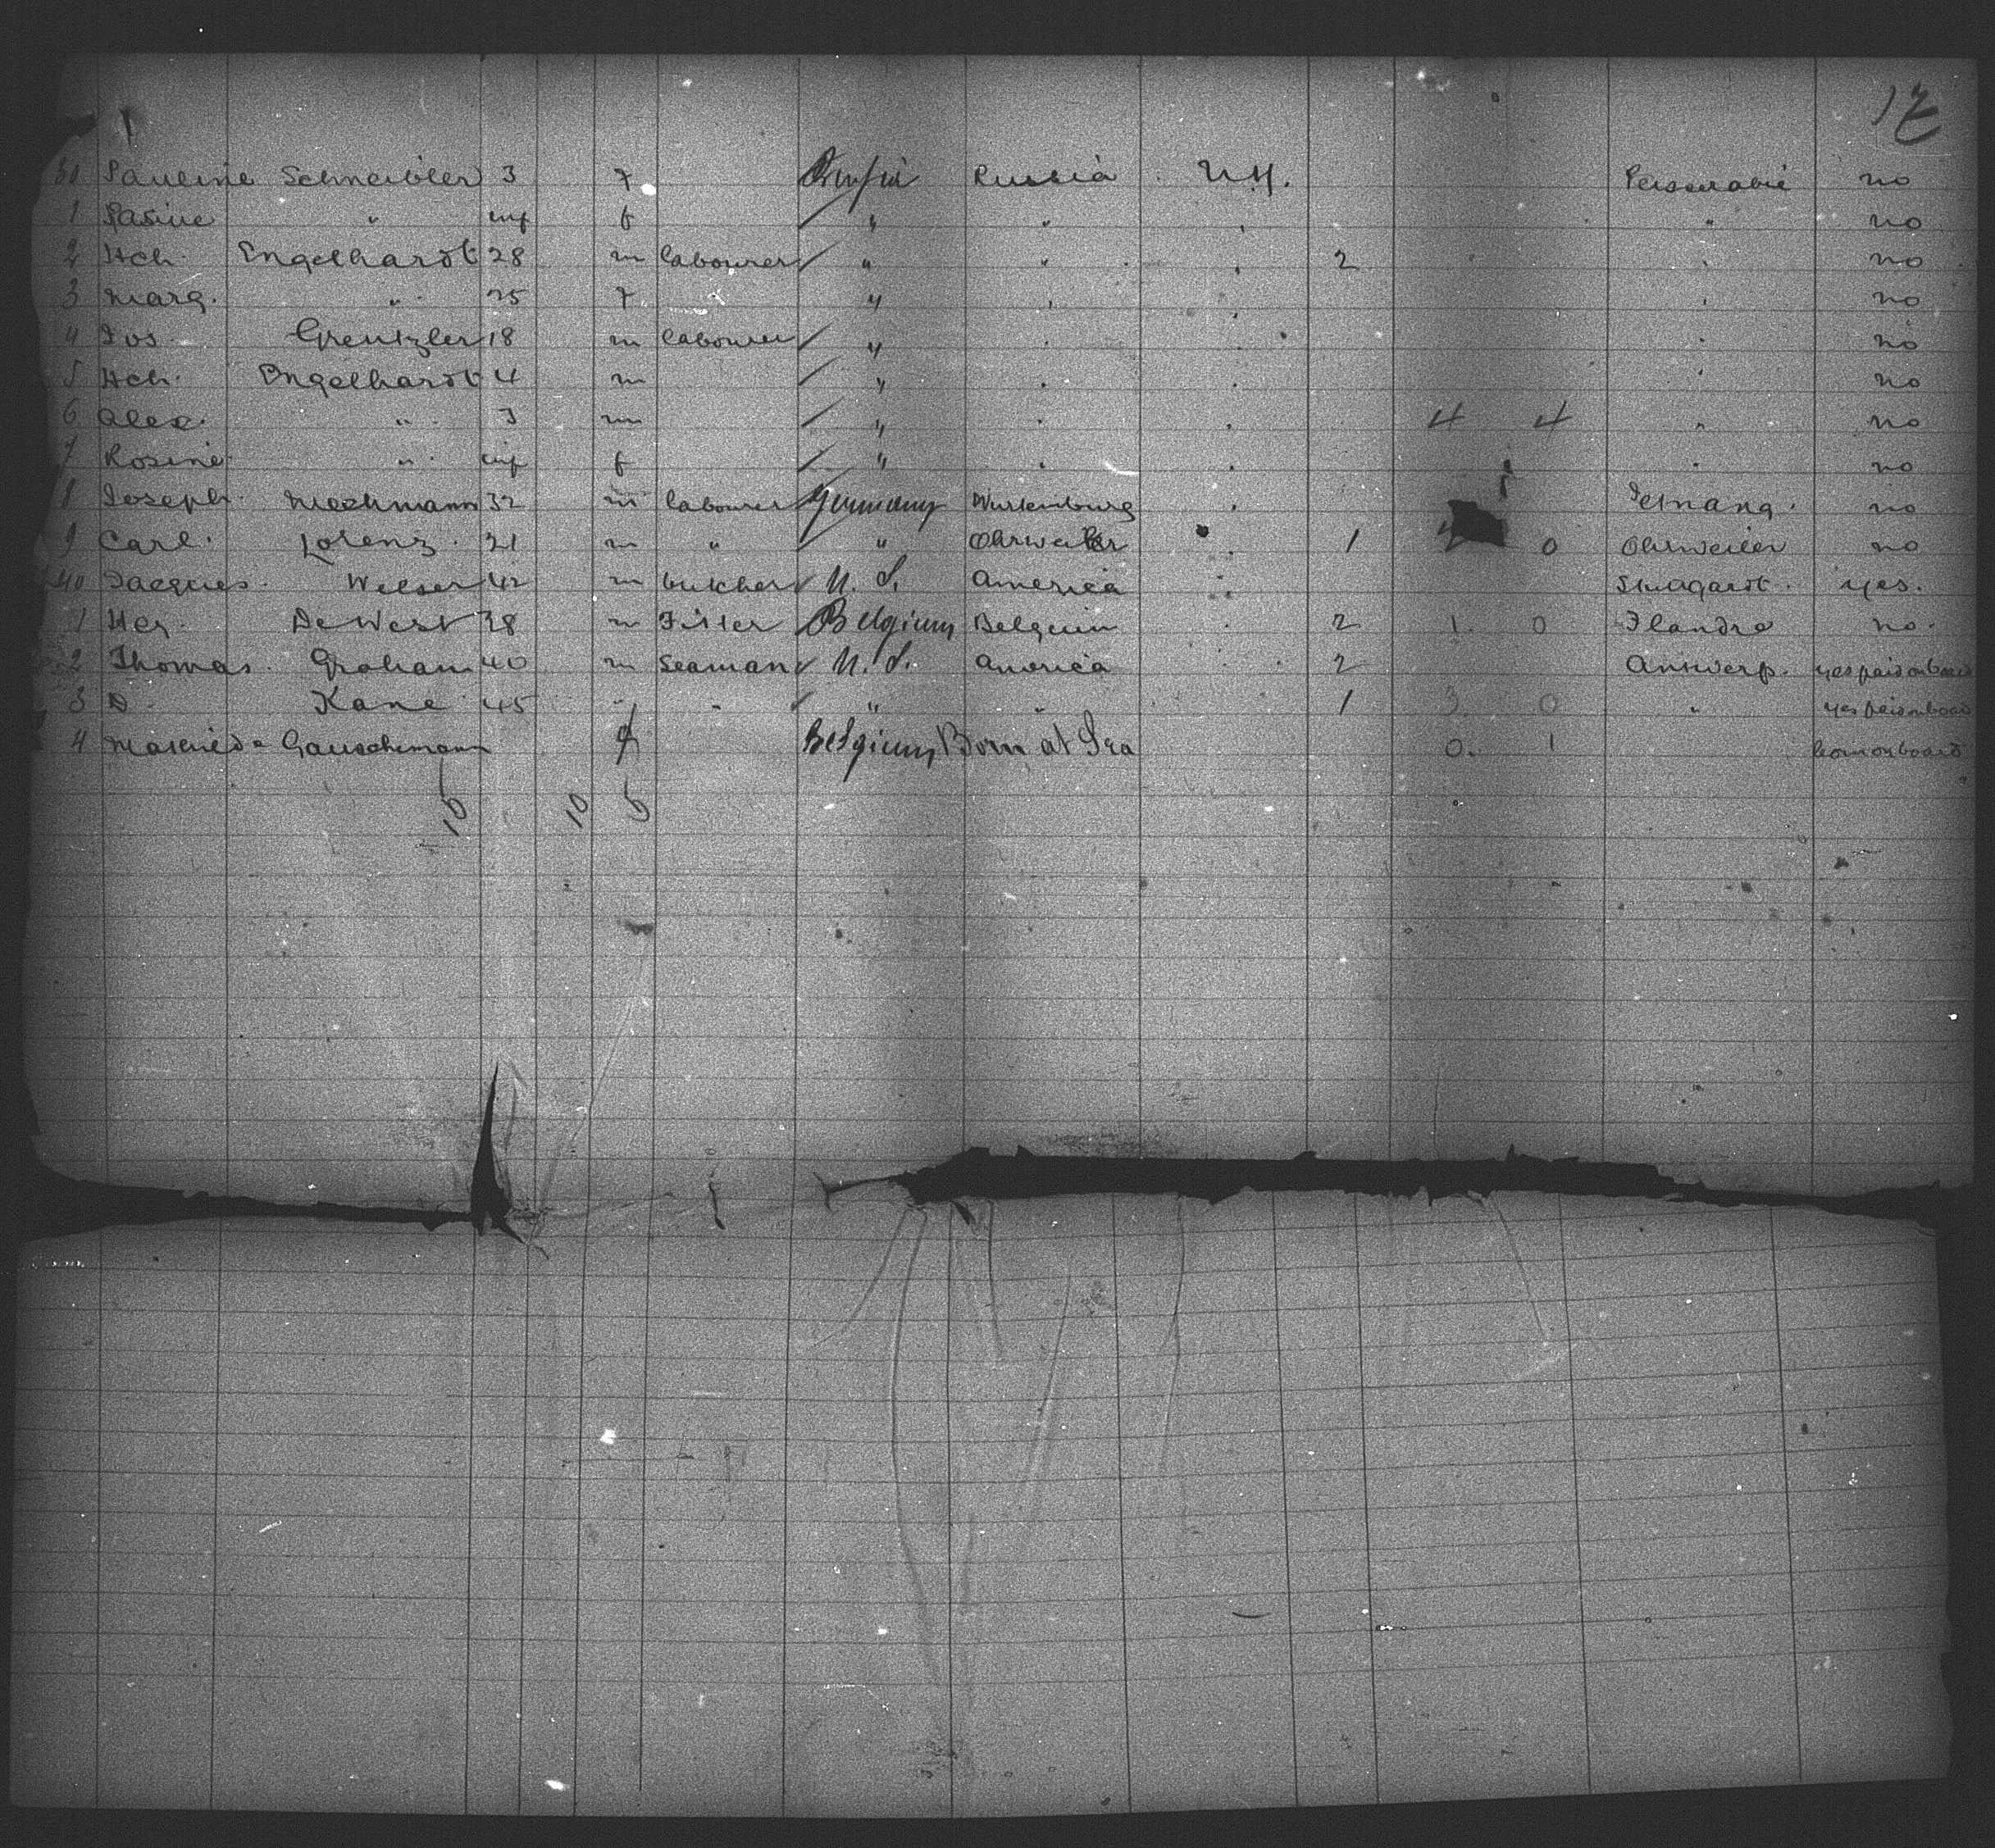 Pauline Schneibler 3 f Russia Russia N.Y. no
1 " inf f " " " no
2 Hch. Engelhardt 28 m labourer " " 2 no
3 Marg. " 25 f " no
4 Jos. Greutzler 18 m labourer " no
5 Hch. Engelhardt 4 m " no
6 Alex. " 3 m " 4 4 " no
7 Rosine " inf f " no
8 Joseph 32 m labourer Germany Wurtemburg no
9 Carl. Lorenz 21 m " " Ohrweiler 1 0 Ohrweiler no
40 Jacques Welser 42 m butcher U.S. America Stuttgardt yes.
1 De West 38 m Belgium Belgium 2 1 0 Flandre no.
2 Thomas Graham 40 m Seaman U.S. America 2 Antwerp. yes paid on board
3 D. Kane 45 " " " " 1 3 0 " yes paid on board
4 Gauschemann f Belgium Born at Sea 0. 1 born on board
10 10 5